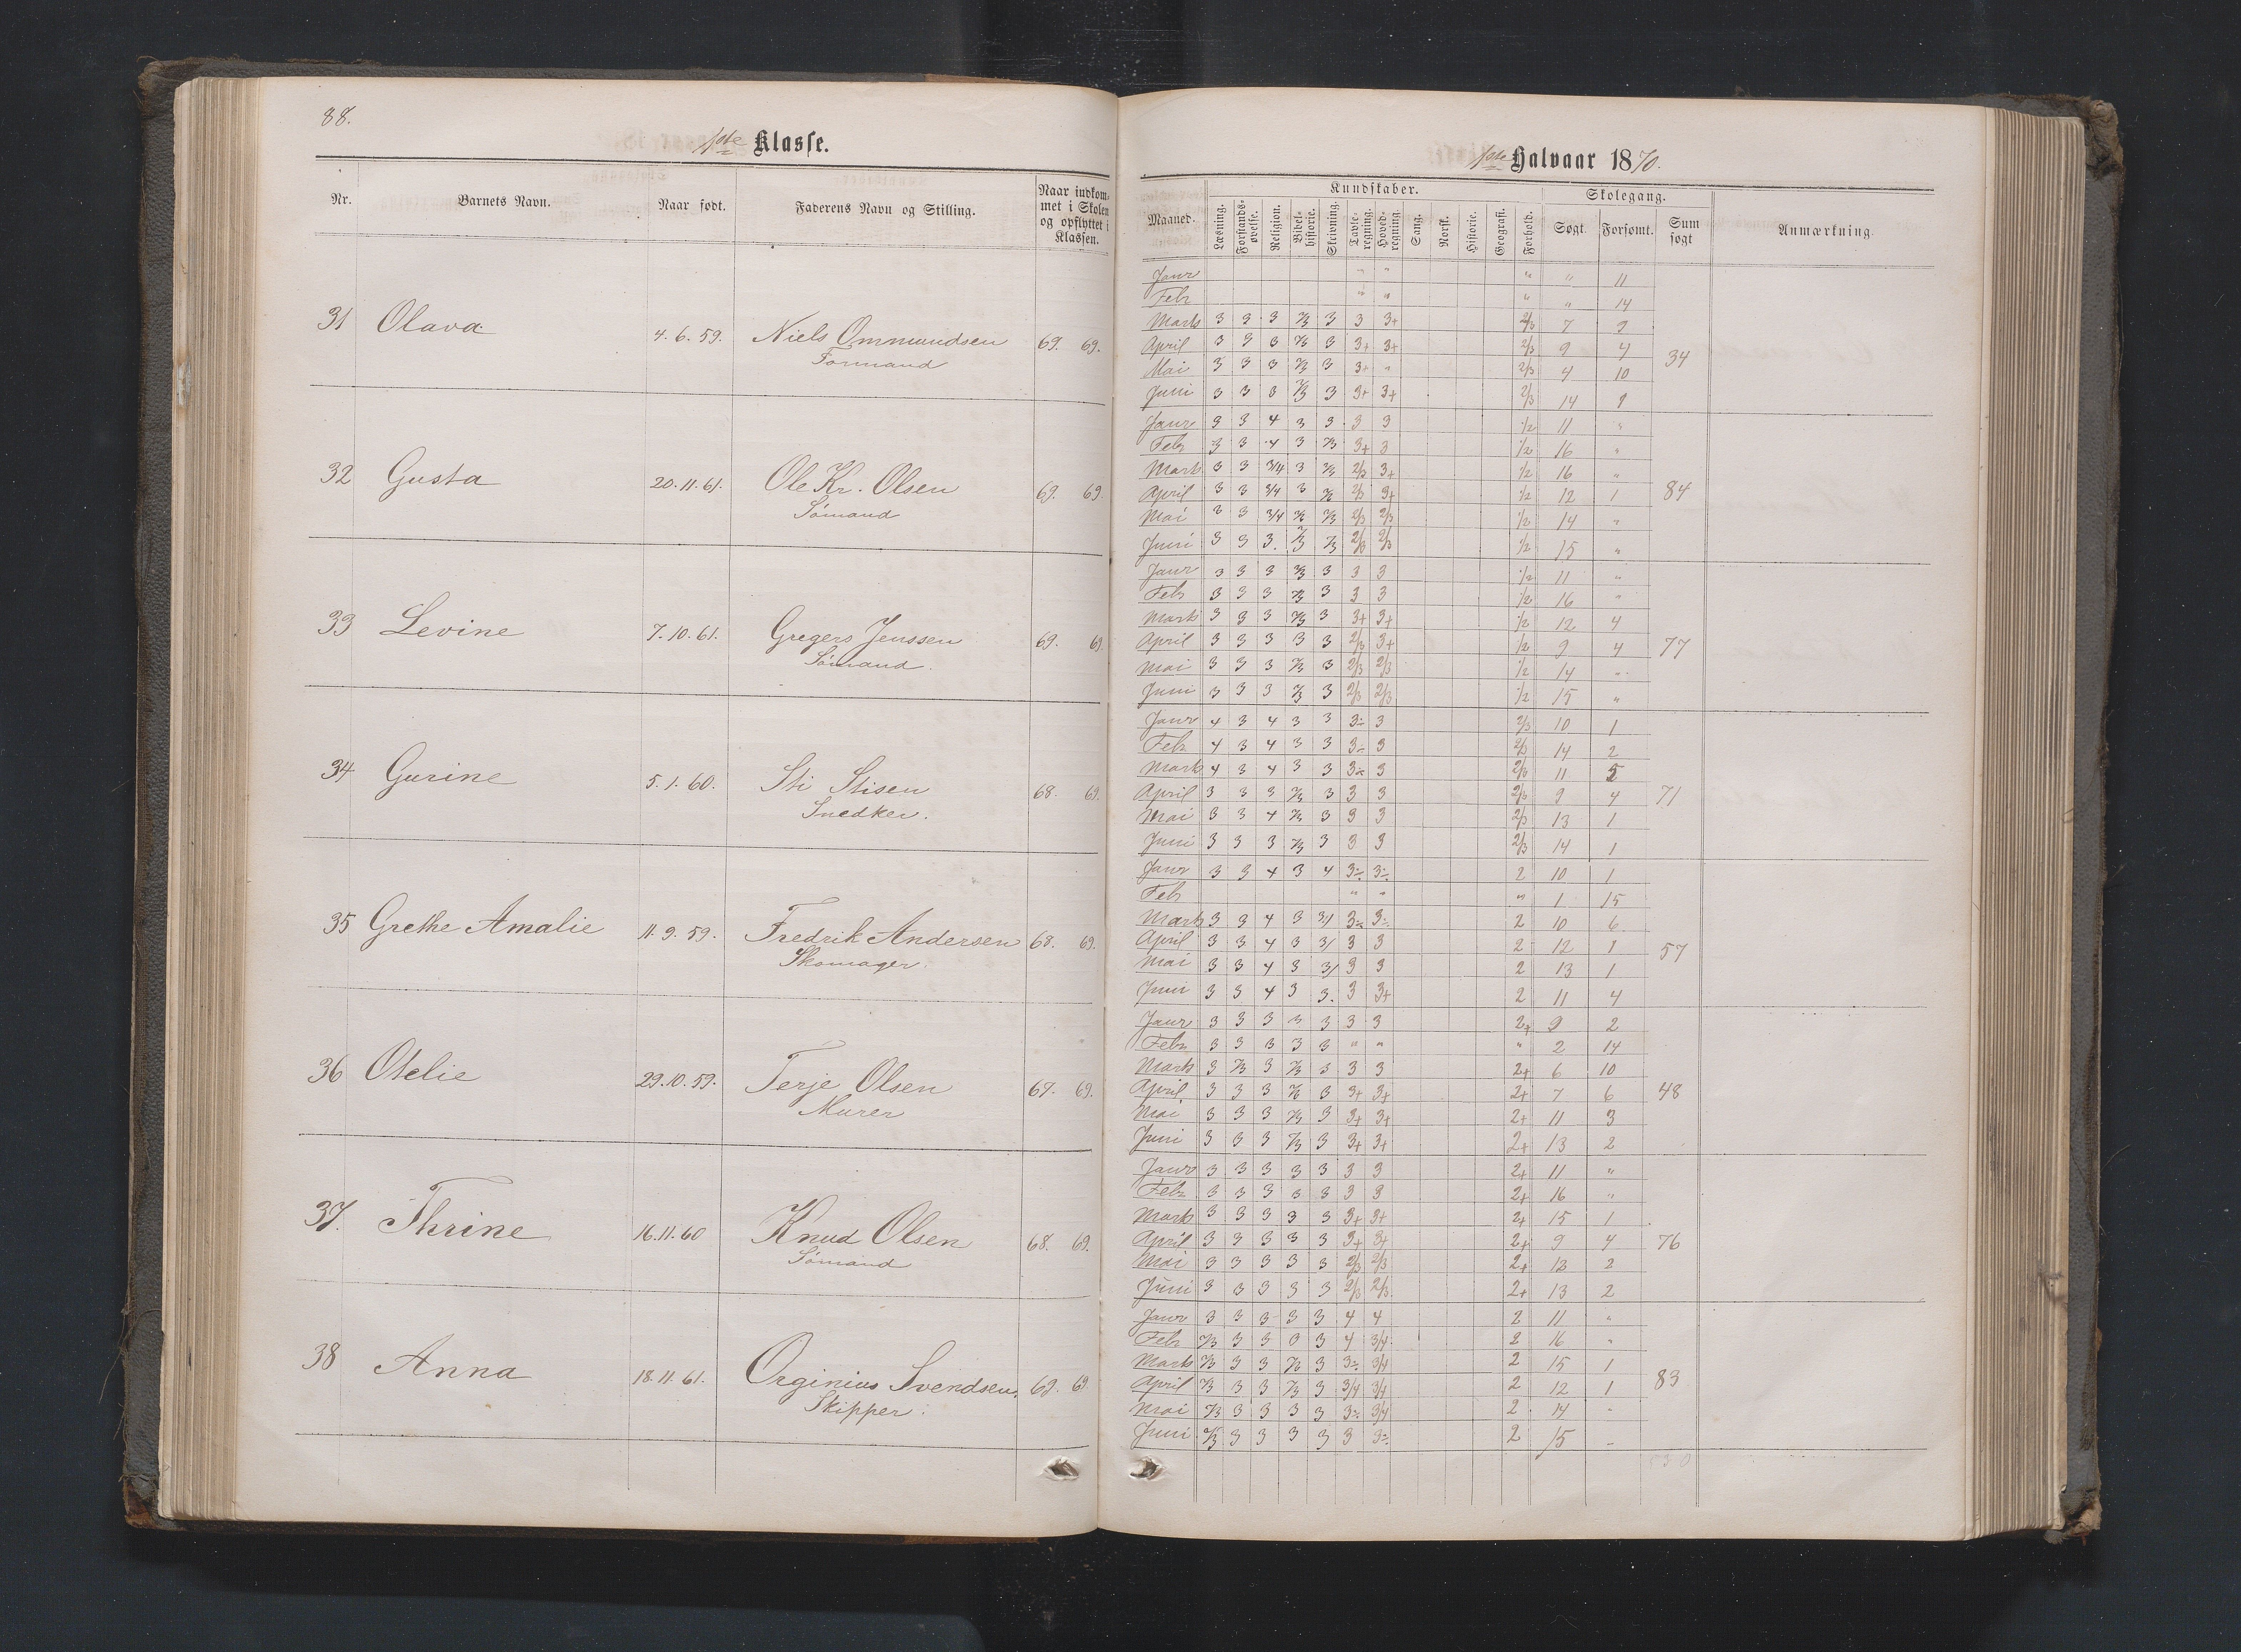 88.
1ste Klasse.
Nr. Barnets Navn. Naar født. Faderens Navn og Stilling. Naar indkom-
met i Skolen
og opflyttet i
Klassen.
31 Olava 4.6.59. Niels Ommundsen 69. 69.
Formand
32 Gusta 20.11.61. Ole Kr. Olsen 69. 69.
Sømand
33 Levine 7.10.61. Gregers Jenssen 69. 69.
Sømand.
34 Gurine 5.1.60. Sti Stisen 68. 69.
Snedker.
35 Grethe Amalie 11.9.59. Fredrik Andersen 68. 69.
Skomager.
36 Otelie 29.10.59. Terje Olsen 67. 69.
Murer
37. Thrine 16.11.60 Knud Olsen 68. 69.
Sømand
38 Anna 18.11.61. Orginius Svendsen. 69. 69
Skipper.
1ste Halvaar 1870.
Maaned. Kundskaber. Skolegang. Anmærkning.
Læsning. Forstands-øvelse. Religion. Bibel-historie. Skrivning. Tavle-regning. Hoved-regning. Sang. Norsk. Historie. Geografi. Forhold. Søgt. Forsømt. Sum søgt
Janr " " " " 11
Febr " " " " 14
Marts 3 3 3 2/3 3 3 3+ 2/3 7 9
April 3 3 3 2/3 3 3+ 3+ 2/3 9 4 34
Mai 3 3 3 2/3 3 3+ " 2/3 4 10
Juni 3 3 3 2/3 3 3+ 3+ 2/3 14 1
Janr 3 3 4 3 3 3 3 1/2 11 "
Febr 3 3 4 3 2/3 3+ 3 1/2 16 "
Marts 3 3 3/4 3 2/3 2/3 3+ 1/2 16 "
April 3 3 3/4 3 2/3 2/3 3+ 1/2 12 1 84
Mai 3 3 3/4 2/3 2/3 2/3 2/3 1/2 14 "
Juni 3 3 3. 2/3 2/3 2/3 2/3 1/2 15 "
Janr 3 3 3 2/3 3 3 3 1/2 11 "
Febr 3 3 3 2/3 3 3 3 1/2 16 "
Marts 3 3 3 2/3 3 3+ 3+ 1/2 12 4
April 3 3 3 3 3 2/3 3+ 1/2 9 4 77
Mai 3 3 3 2/3 3 2/3 2/3 1/2 14 "
Juni 3 3 3 2/3 3 2/3 2/3 1/2 15 "
Janr 4 3 4 3 3 3÷ 3 2/3 10 1
Febr 4 3 4 3 3 3÷ 3 2/3 14 2
Marts 4 3 4 3 3 3÷ 3 2/3 11 5
April 3 3 3 2/3 3 3 3 2/3 9 4 71
Mai 3 3 4 2/3 3 3 3 2/3 13 1
Juni 3 3 3 2/3 3 3 3 2/3 14 1
Janr 3 3 4 3 4 3÷ 3÷ 2 10 1
Feb " " " 1 15
Marts 3 3 4 3 3/ 3÷ 3÷ 2 10 6
April 3 3 4 3 3/ 3 3 2 12 1 57
Mai 3 3 4 3 3/ 3 3 2 13 1
Juni 3 3 4 3 3. 3 3+ 2 11 4
Janr 3 3 3 3 3 3 3 2+ 9 2
Febr 3 3 3 3 3 " " " 2 14
Marts 3 2/3 3 2/3 3 3 3 2+ 6 10
April 3 3 3 2/3 3 3+ 3+ 2+ 7 6 48
Mai 3 3 3 2/3 3 3+ 3+ 2+ 11 3
Juni 3 3 3 2/3 3 3+ 3+ 2+ 13 2
Janr 3 3 3 3 3 3 3 2+ 11 "
Febr 3 3 3 3 3 3 3 2+ 16 "
Marts 3 3 3 3 3 3+ 3+ 2+ 15 1
April 3 3 3 3 3 3+ 3+ 2+ 9 4 76
Mai 3 3 3 3 3 2/3 2/3 2+ 12 2
Juni 3 3 3 3 3 2/3 2/3 2+ 13 2
Janr 3 3 3 3 3 4 4 2 11 "
Feb 2/3 3 3 3 3 4 3/4 2 16 "
Marts 2/3 3 3 2/3 3 3÷ 3/4 2 15 1
April 2/3 3 3 2/3 3 3/4 3/4 2 12 1 83
Mai 2/3 3 3 3 3 3÷ 3/4 2 14 "
Juni 2/3 3 3 3 3 3 3÷ 2 15 "